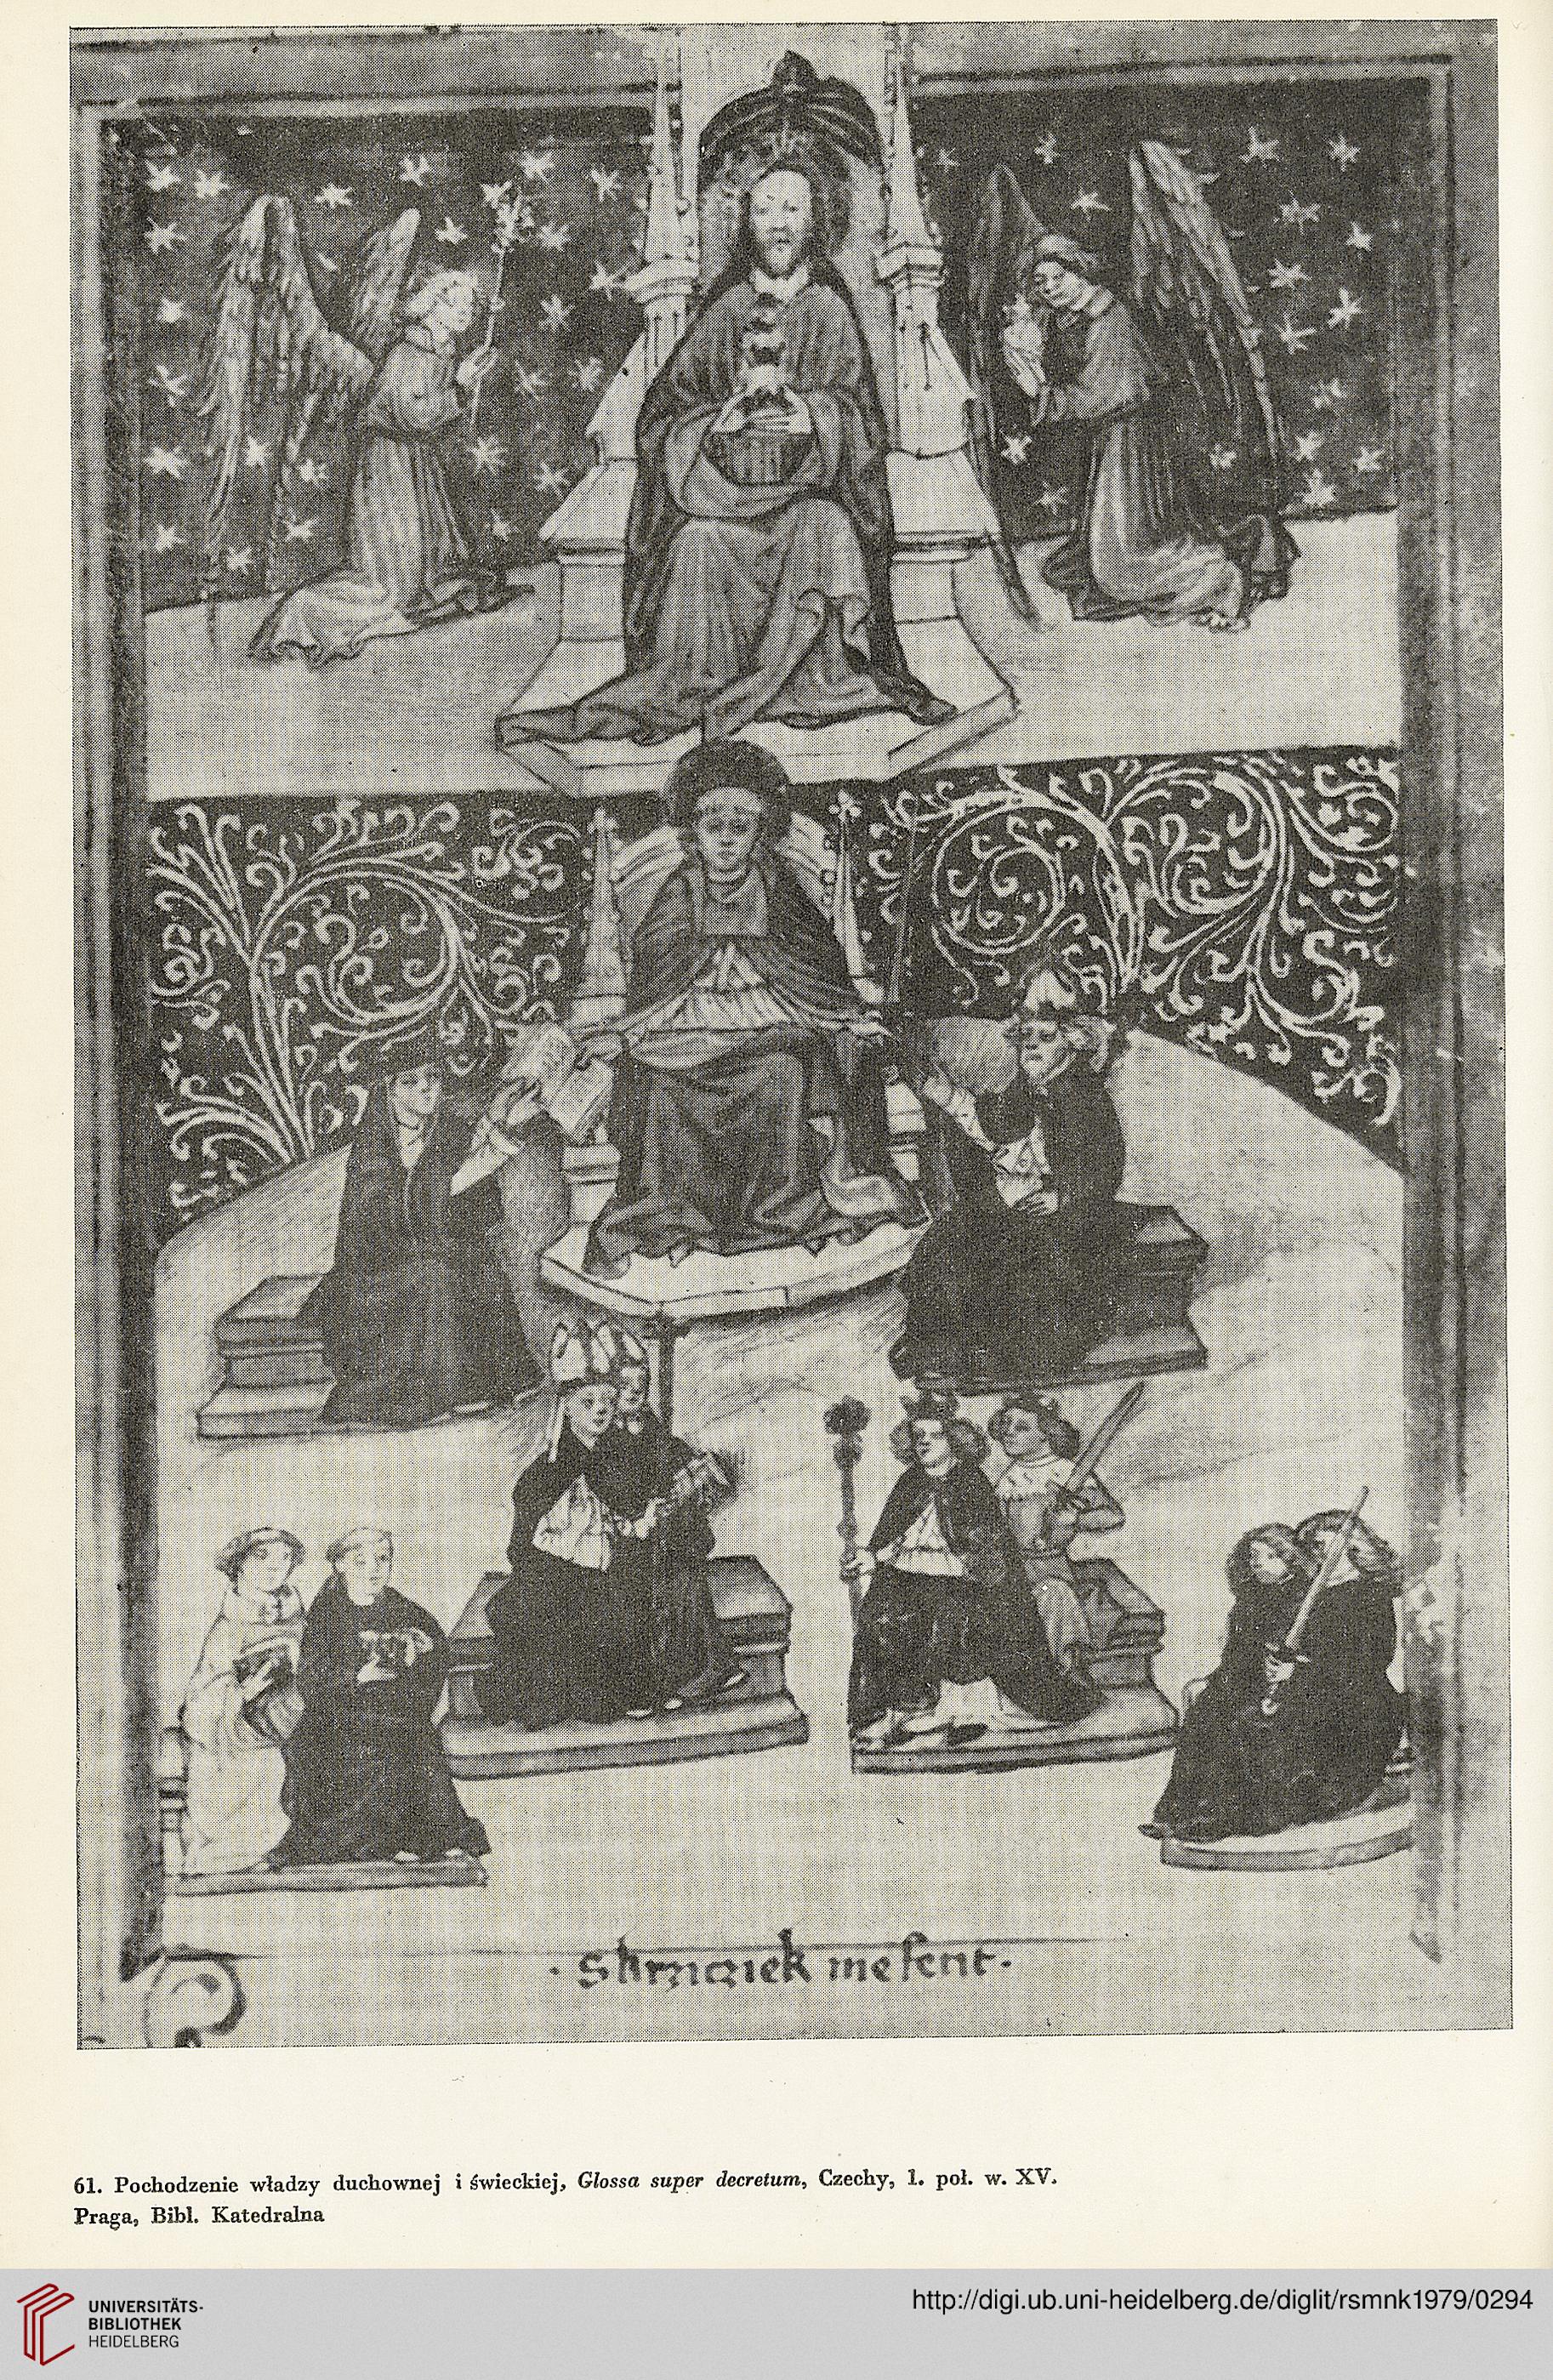 · Shrzicziek me fecit ·
61. Pochodzenie władzy duchownej i świeckiej, Glossa super decretum, Czechy, 1. poł. w. XV.
Praga, Bibl. Katedralna
UNIVERSITÄTS-
BIBLIOTHEK
HEIDELBERG
http://digi.ub.uni-heidelberg.de/diglit/rsmnk1979/0294